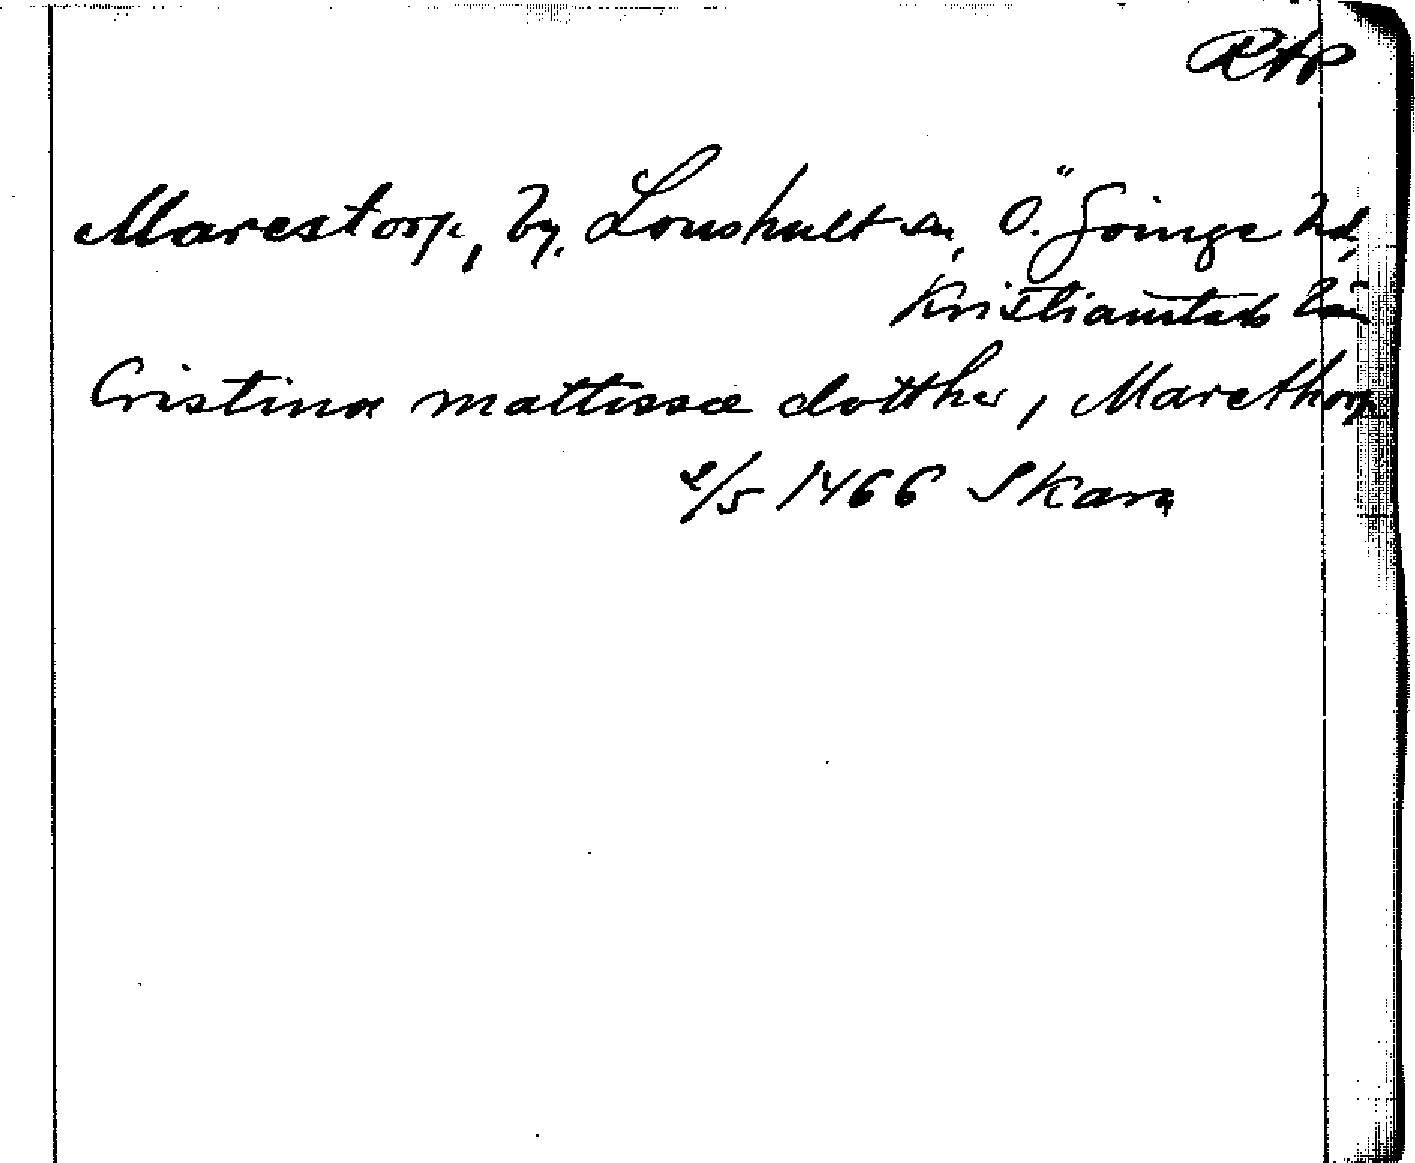 RAp
Marestorp, by, Lönshult sn, Ö. Göinge hd,
Kristianstads län
Cristina mattissæ dotther, Marethorp
2/5 1466 Skan